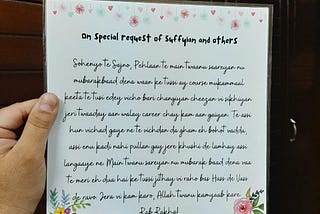 On Special request of Suffyian and others
Sohenyo te Sajno, Pehlaan te main twaanu saareyan nu
mubarakbaad dena waan ke tussi ay course mukammal
keeta te tusi edey vicho bari changiyan cheezan vi sikhiyan
jeri twaaday aan walay career chay kam aan gaiyan. Te assi
hun vichad gaye ne te vichdan da gham eh bohot vadda,
assi enu kadi nahi pullan gay jere khushi de lamhay assi
langaaye ne. Main twaanu sareyan nu mubarak baad dena vaa
te meri eh dua hai ke tussi jithay vi raho bas Hass de Vass
de ravo. Jera vi kam karo, Allah twaanu kamyaab kare.
Rab Rakha!